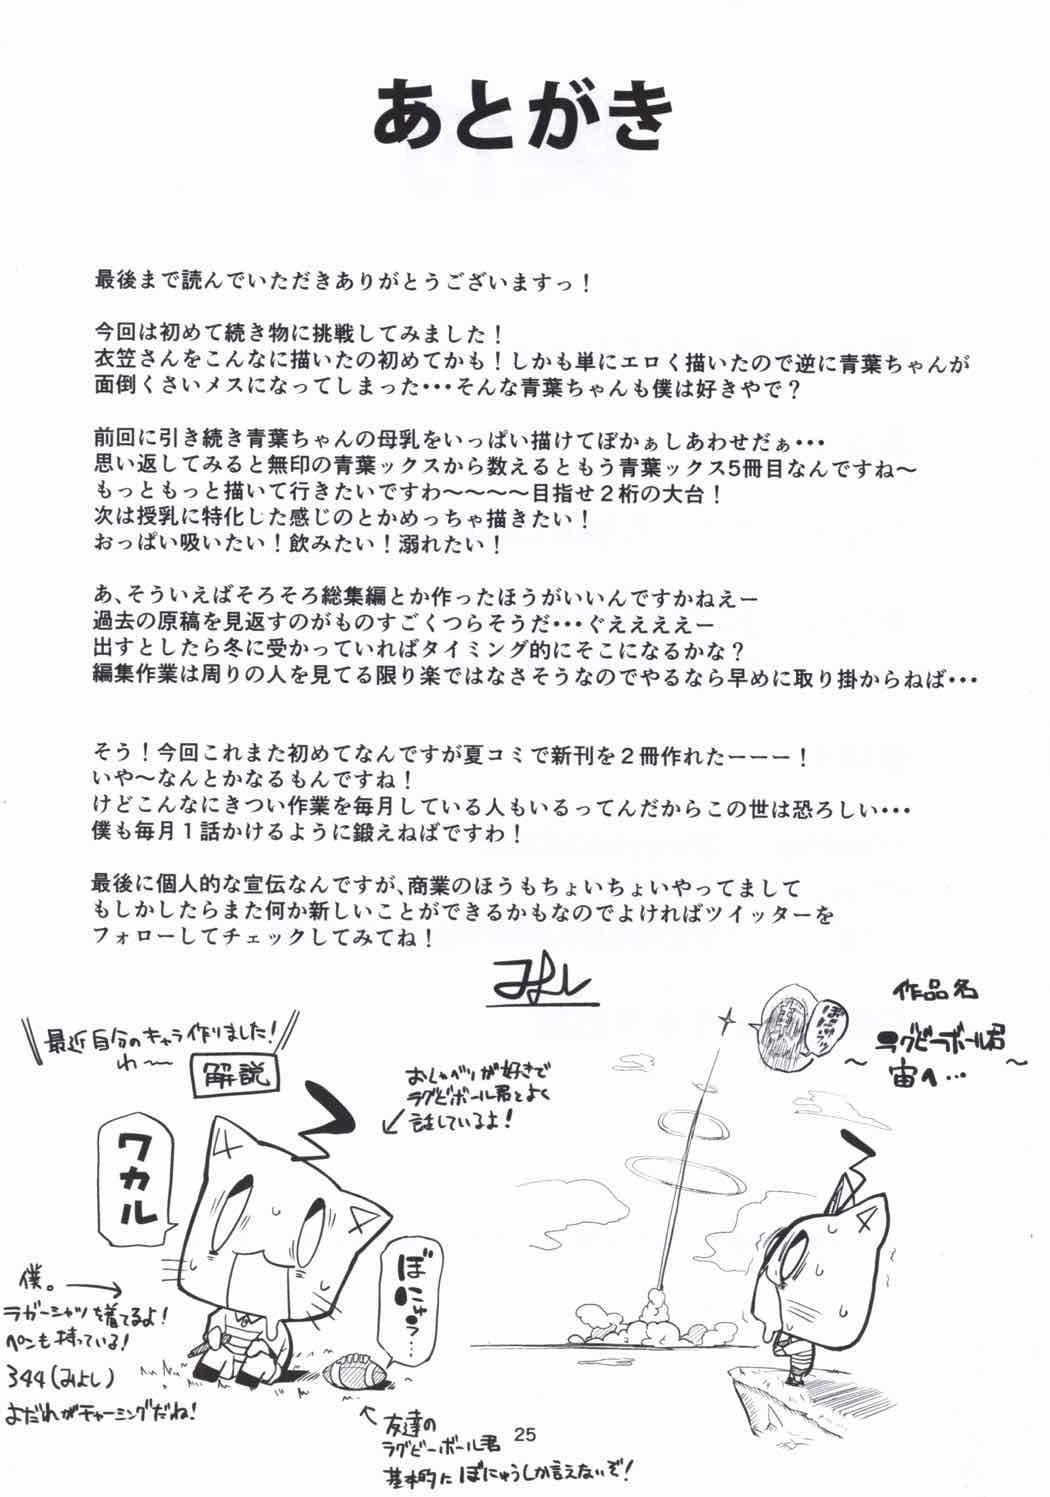 あとがき
最後まで読んでいただきありがとうございますっ！
今回は初めて続き物に挑戦してみました！
衣笠さんをこんなに描いたの初めてかも！しかも単にエロく描いたので逆に青葉ちゃんが
面倒くさいメスになってしまった・・・そんな青葉ちゃんも僕は好きやで？
前回に引き続き青葉ちゃんの母乳をいっぱい描けてぽかぁしあわせだぁ・・・
思い返してみると無印の青葉ックスから数えるともう青葉ックス5冊目なんですね〜
もっともっと描いて行きたいですわ〜〜〜〜目指せ２桁の大台！
次は授乳に特化した感じのとかめっちゃ描きたい！
おっぱい吸いたい！飲みたい！溺れたい！
あ、そういえばそろそろ総集編とか作ったほうがいいんですかねえー
過去の原稿を見返すのがものすごくつらそうだ・・・ぐええええー
出すとしたら冬に受かっていればタイミング的にそこになるかな？
編集作業は周りの人を見てる限り楽ではなさそうなのでやるなら早めに取り掛からねば・・・
そう！今回これまた初めてなんですが夏コミで新刊を２冊作れたーーー！
いや〜なんとかなるもんですね！
けどこんなにきつい作業を毎月している人もいるってんだからこの世は恐ろしい・・・
僕も毎月１話かけるように鍛えねばですわ！
最後に個人的な宣伝なんですが、商業のほうもちょいちょいやってまして
もしかしたらまた何か新しいことができるかもなのでよければツイッターを
フォローしてチェックしてみてね！
みよし
最近自分のキャラ作りました！
わ〜
解説
ワカル
おしゃべりが好きで
ラグビーボール君とよく
話しているよ！
僕。
ラガーシャツを着てるよ！
ペンも持っている！
344(みよし)
よだれがチャーミングだね！
ぼにゅぅ…
友達の
ラグビーボール君
基本的にぼにゅうしか言えないぞ！
作品名
ラグビーボール君
〜宙へ…〜
25